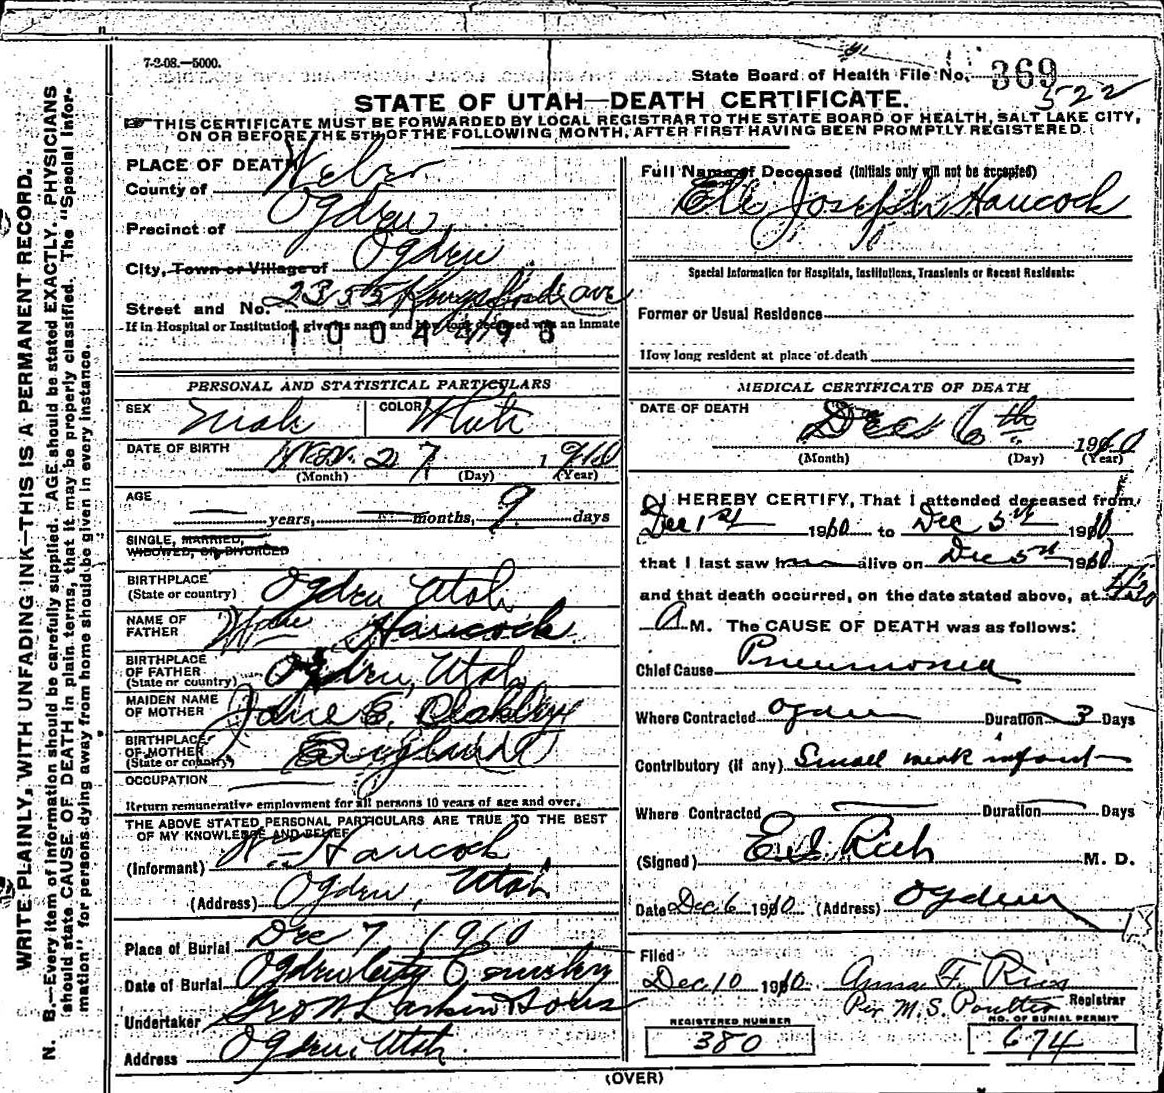 7-2-08.—5000.
State Board of Health File No. 369
522
STATE OF UTAH—DEATH CERTIFICATE.
THIS CERTIFICATE MUST BE FORWARDED BY LOCAL REGISTRAR TO THE STATE BOARD OF HEALTH, SALT LAKE CITY,
ON OR BEFORE THE 5TH OF THE FOLLOWING MONTH, AFTER FIRST HAVING BEEN PROMPTLY REGISTERED.
WRITE PLAINLY, WITH UNFADING INK—THIS IS A PERMANENT RECORD.
N. B.—Every item of information should be carefully supplied. AGE should be stated EXACTLY. PHYSICIANS
should state CAUSE OF DEATH in plain terms, that it may be properly classified. The "Special Infor-
mation" for persons dying away from home should be given in every instance.
PLACE OF DEATH
County of Weber
Precinct of Ogden
City, Town or Village of Ogden
Street and No. 2355 Ave
If in Hospital or Institution, give its name and how long deceased was an inmate
1004498
PERSONAL AND STATISTICAL PARTICULARS
SEX Male COLOR White
DATE OF BIRTH Nov. 27 1910
(Month) (Day) (Year)
AGE
years, months, 9 days
SINGLE, MARRIED,
WIDOWED, OR DIVORCED
BIRTHPLACE
(State or country) Ogden Utah
NAME OF
FATHER Wm Hancock
BIRTHPLACE
OF FATHER
(State or country) Ogden, Utah
MAIDEN NAME
OF MOTHER Jane E. Blakley
BIRTHPLACE
OF MOTHER
(State or country) England
OCCUPATION
Return remunerative employment for all persons 10 years of age and over.
THE ABOVE STATED PERSONAL PARTICULARS ARE TRUE TO THE BEST
OF MY KNOWLEDGE AND BELIEF
(Informant) Wm Hancock
(Address) Ogden, Utah
Place of Burial Dec 7 1910
Date of Burial Ogden City Cemetery
Undertaker Geo W Larkin & Sons
Address Ogden, Utah.
Full Name of Deceased (Initials only will not be accepted)
Eli Joseph Hancock
Special Information for Hospitals, Institutions, Transients or Recent Residents:
Former or Usual Residence
How long resident at place of death
MEDICAL CERTIFICATE OF DEATH
DATE OF DEATH Dec 6th 1910
(Month) (Day) (Year)
I HEREBY CERTIFY, That I attended deceased from
Dec 1st 1910 to Dec 5th 1910
that I last saw h alive on Dec 5th 1910
and that death occurred, on the date stated above, at 4:30
A M. The CAUSE OF DEATH was as follows:
Chief Cause Pneumonia
Where Contracted Ogden Duration 3 Days
Contributory (if any) Small weak infant
Where Contracted Duration Days
(Signed) E I Rich M. D.
Date Dec. 6 1910 (Address) Ogden
Filed
Dec 10 1910 Anna F. Ries
Per M. S. Poulter Registrar
REGISTERED NUMBER
380
NO. OF BURIAL PERMIT
674
(OVER)